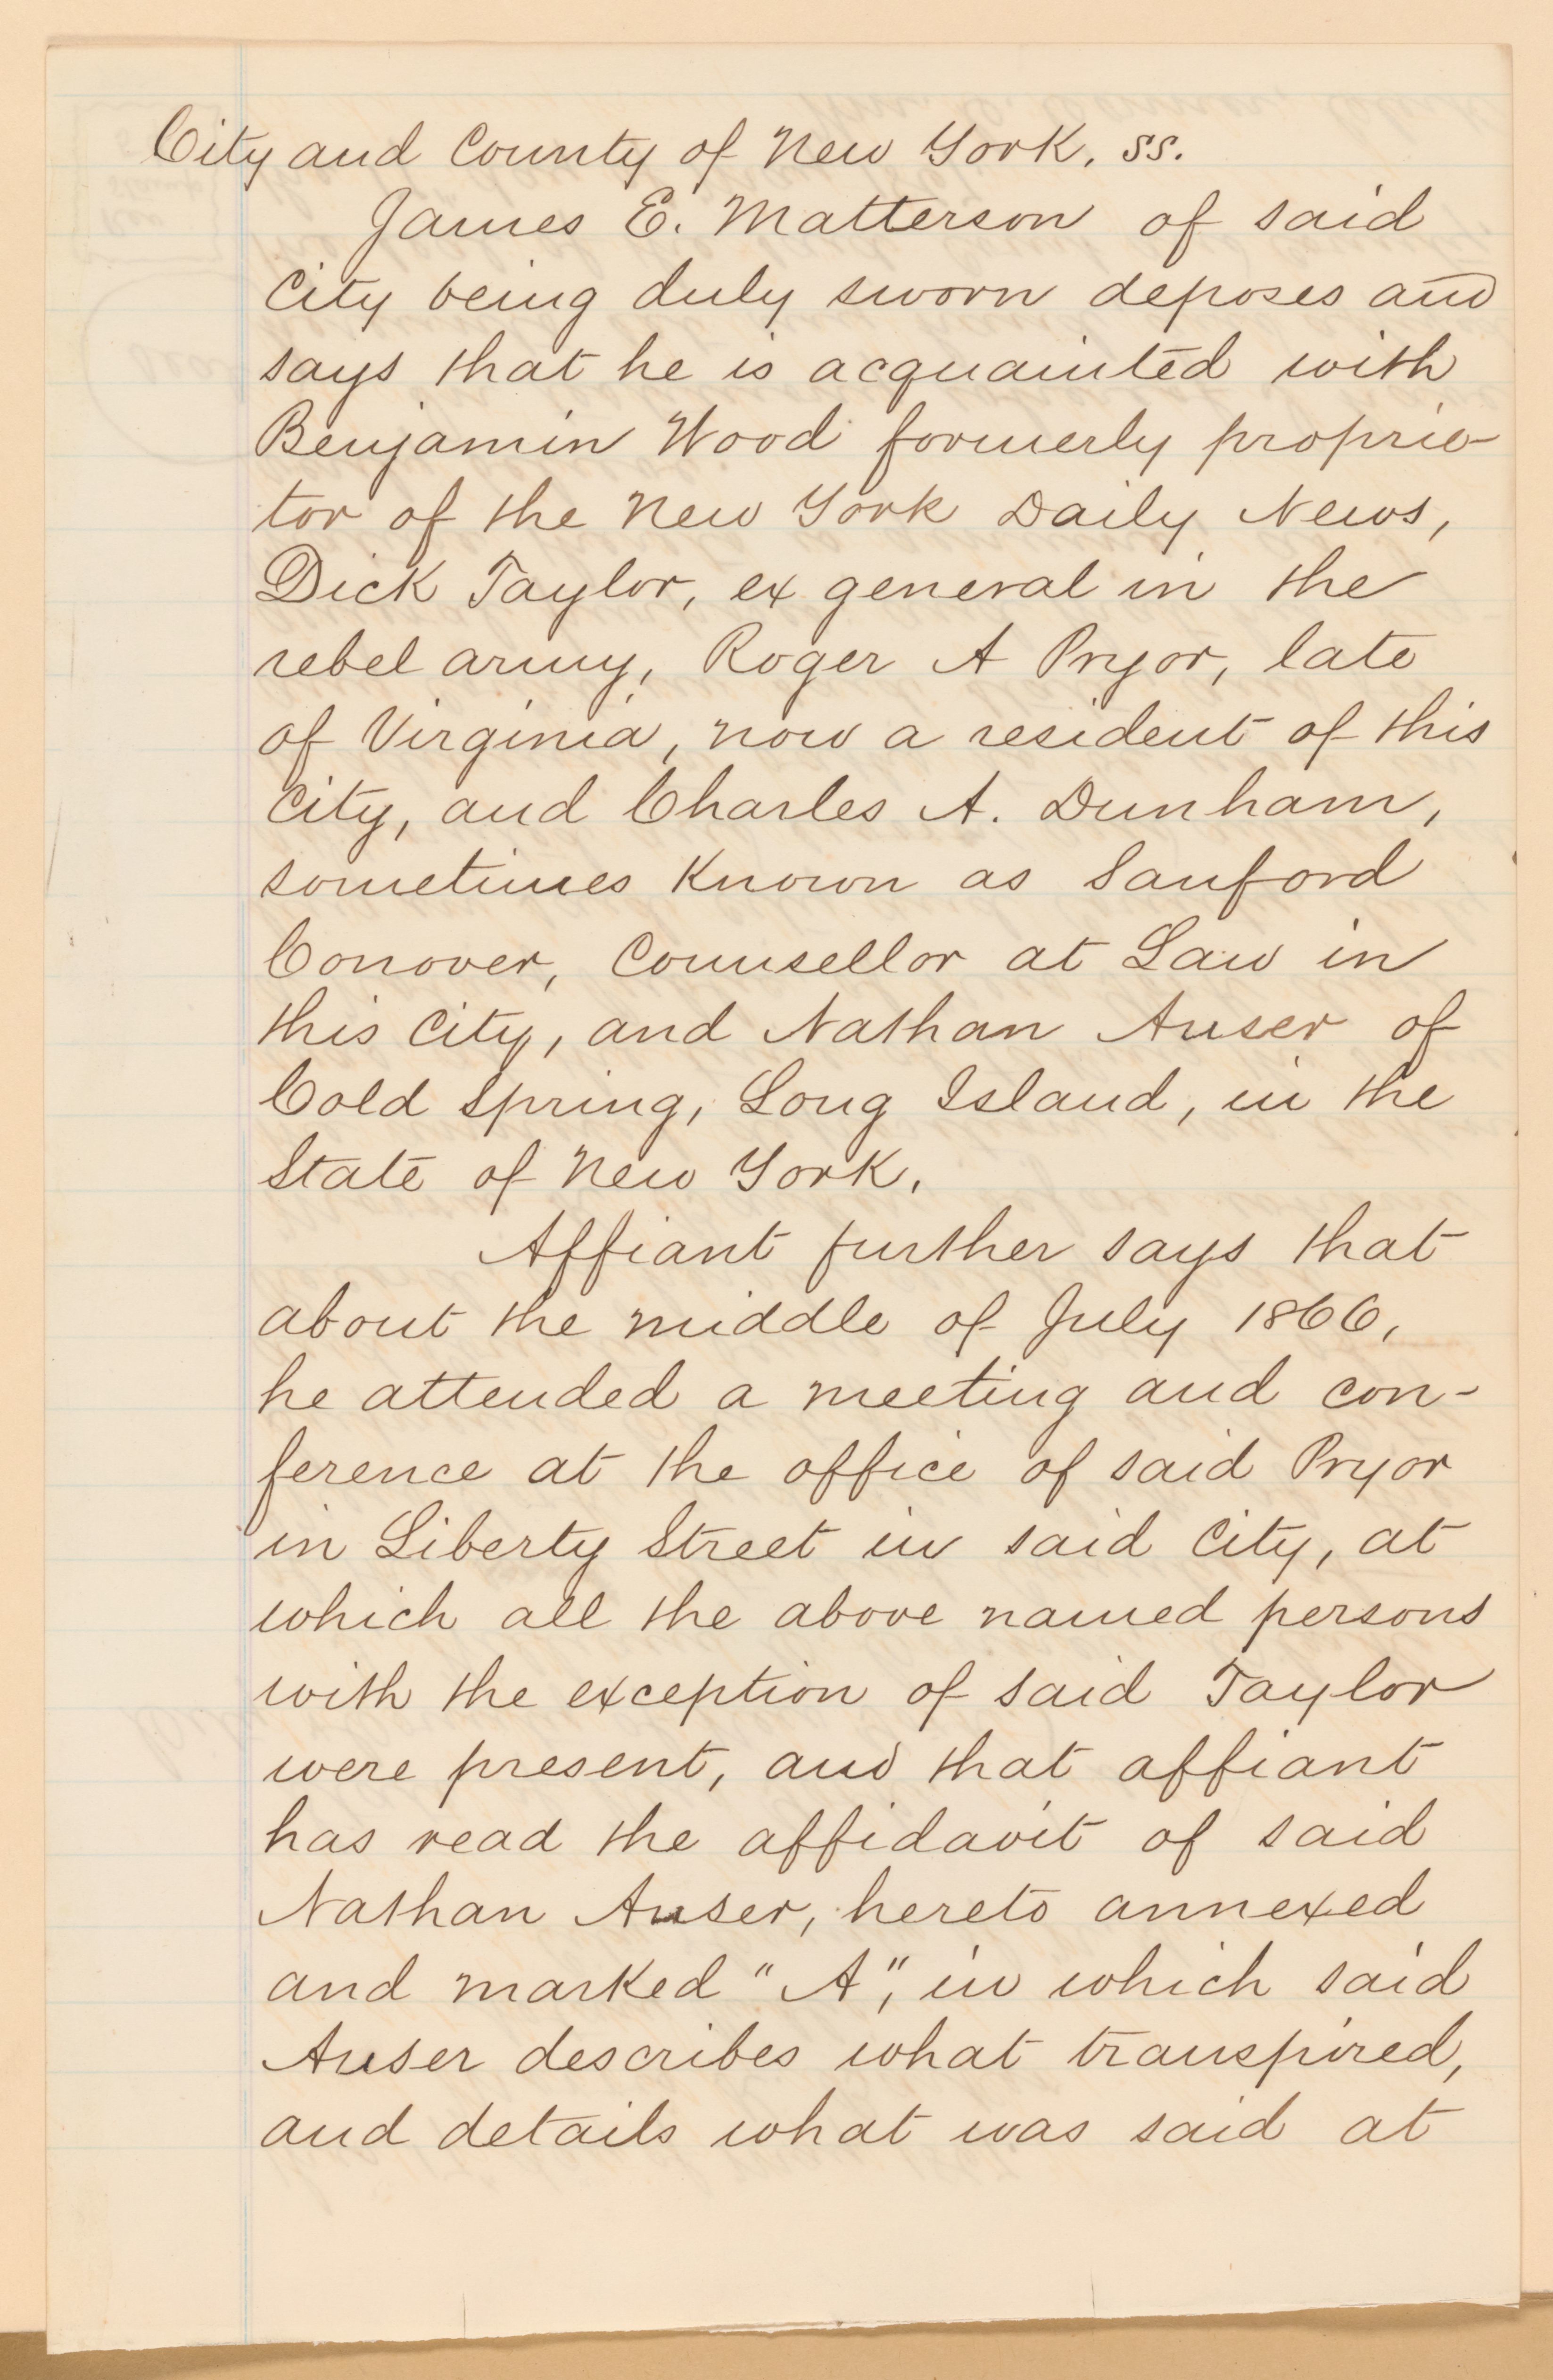 City and County of New York, ss.
James E. Matterson of said
City being duly sworn deposes and
says that he is acquainted with
Benjamin Wood formerly proprie-
tor of the New York Daily News,
Dick Taylor, ex general in the
rebel army, Roger A Pryor, late
of Virginia, now a resident of this
City, and Charles A. Dunham,
sometimes Known as Sanford
Conover, Counsellor at Law in
this City, and Nathan Auser of
Cold Spring, Long Island, in the
State of New York.
Affiant further says that
about the middle of July 1866,
he attended a meeting and con-
ference at the office of said Pryor
in Liberty Street in said City, at
which all the above named persons
with the exception of said Taylor
were present, and that affiant
has read the affidavit of said
Nathan Auser, hereto annexed
and marked "A", in which said
Auser describes what transpired,
and details what was said at